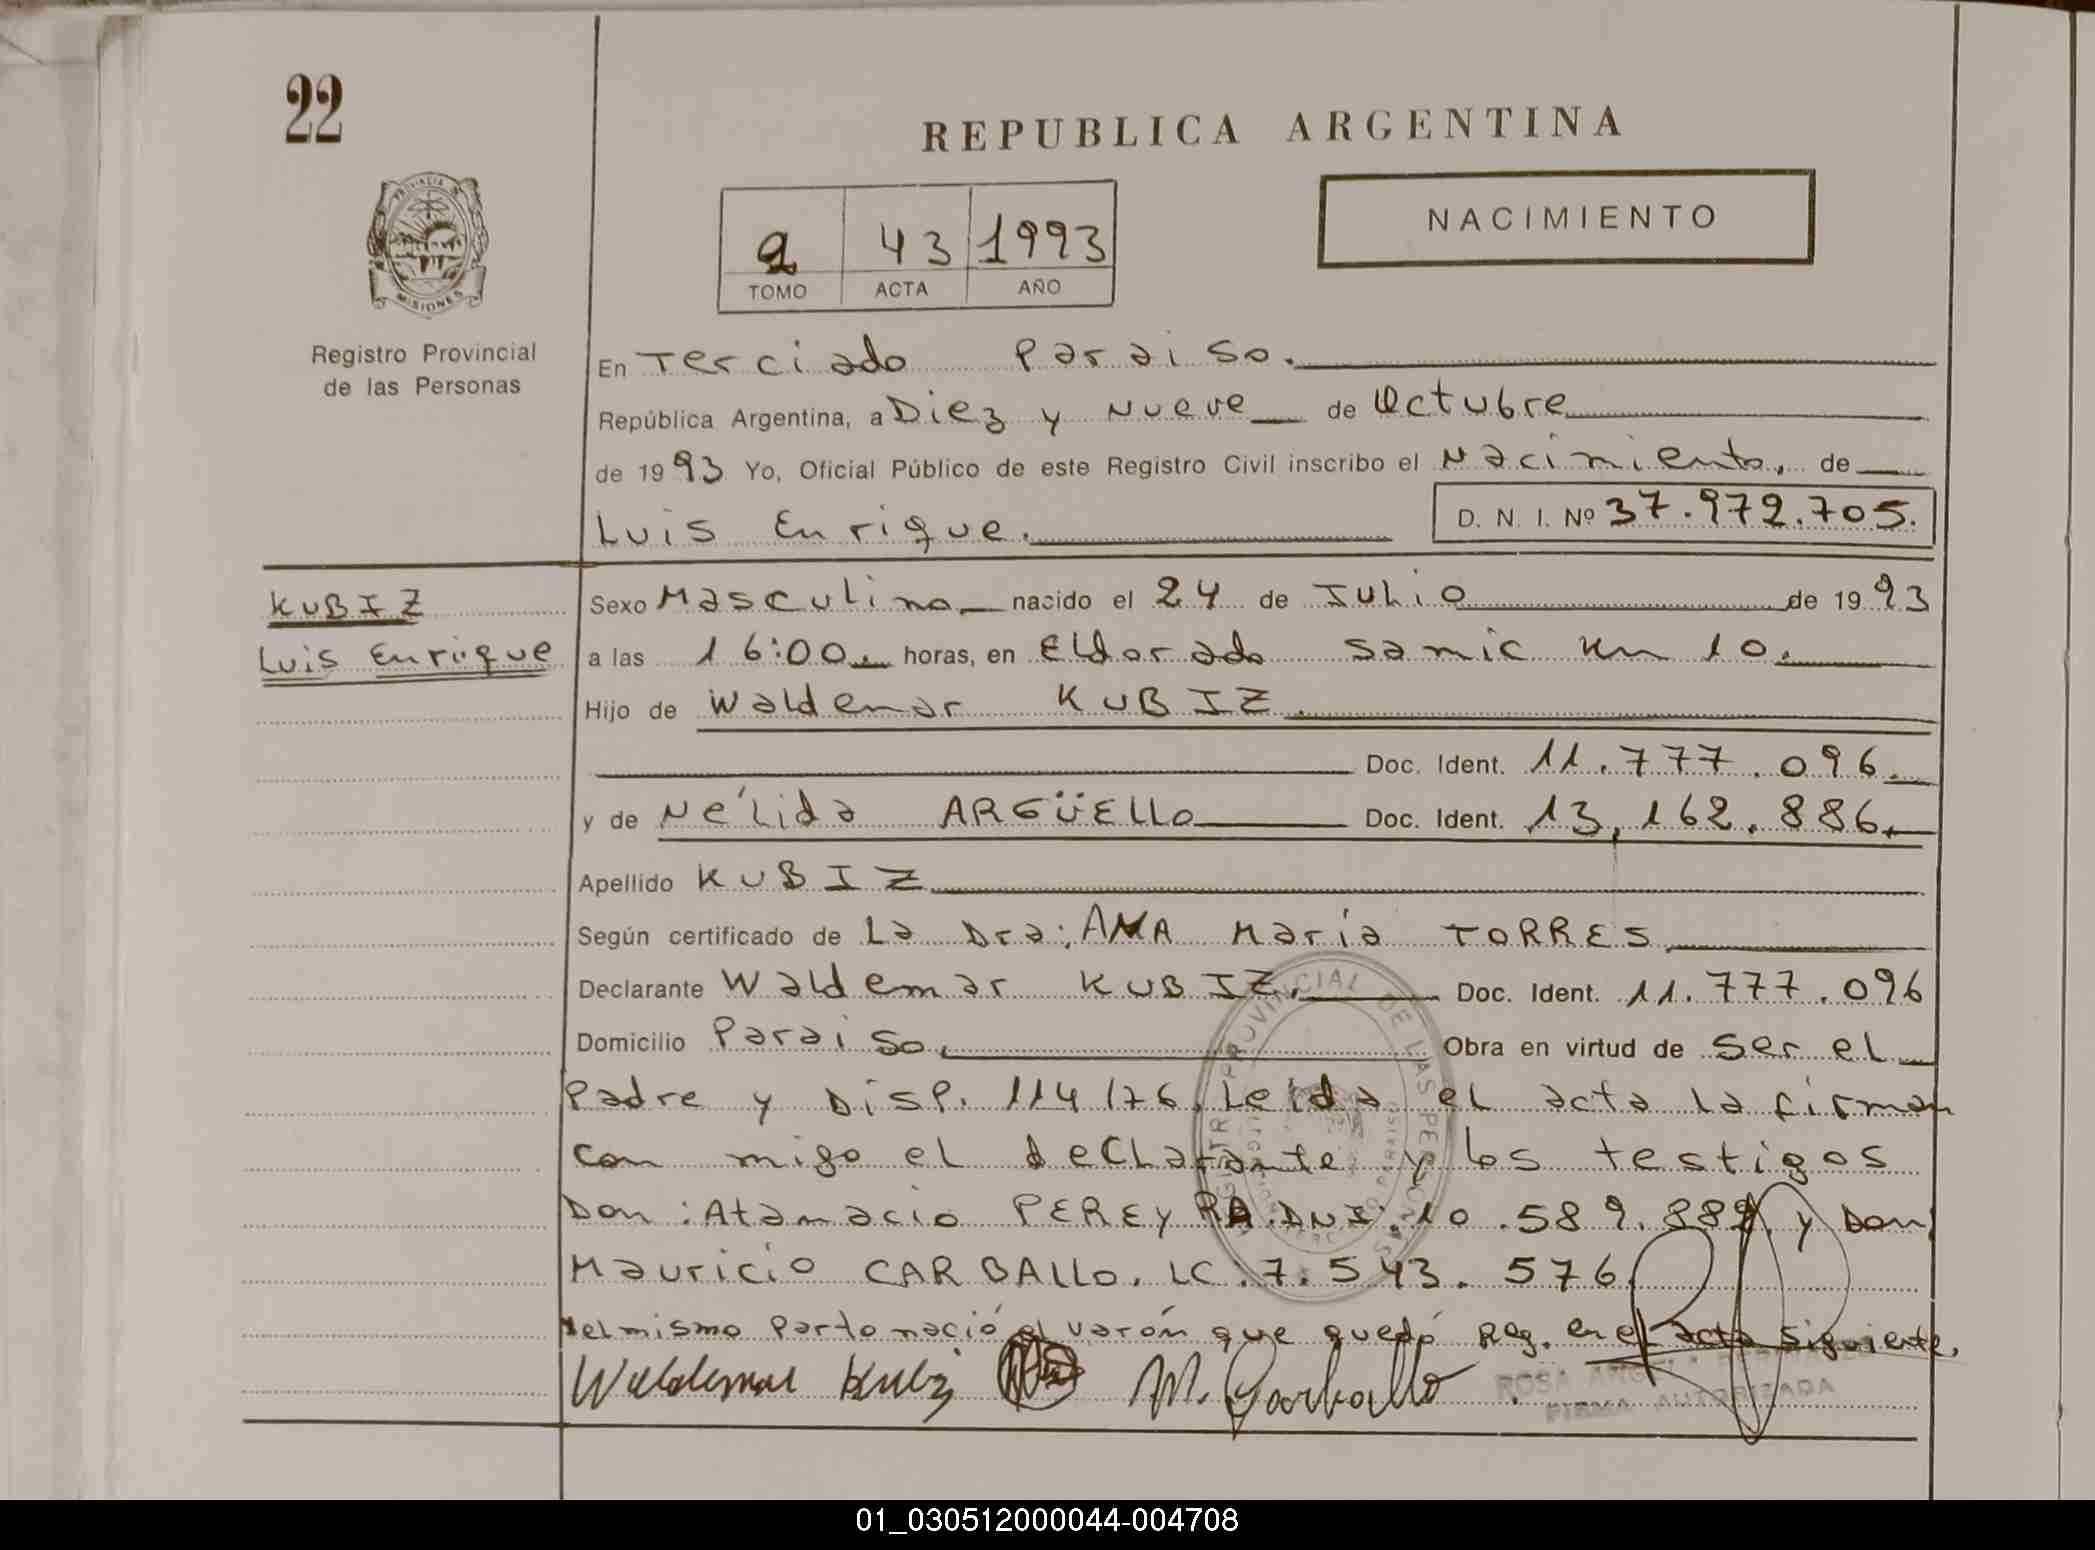 22
REPUBLICA ARGENTINA
NACIMIENTO
43 1993
TOMO ACTA AÑO
PROVINCIA DE
MISIONES
Registro Provincial
de las Personas
En Terciado Paraiso.
República Argentina, a Diez y Nueve de Octubre
de 1993 Yo, Oficial Público de este Registro Civil inscribo el Nacimiento, de
Luis Enrique. D. N. I. Nº 37.972.705.
KUBIZ
Luis Enrique
Sexo Masculino nacido el 24 de Julio de 1993
a las 16:00 horas, en Eldorado Samic Km 10.
Hijo de Waldemar KUBIZ.
Doc. Ident. 11.777.096.
y de Nélida ARGÜELLO Doc. Ident. 13,162.886.
Apellido KUBIZ
Según certificado de La Dra: ANA María TORRES
Declarante Waldemar KUBIZ. Doc. Ident. 11.777.096
Domicilio Paraiso, Obra en virtud de ser el
Padre y Disp. 114/76. Leída el acta la firman
con migo el declarante y los testigos
Don: Atanacio PEREYRA. DNI. 10.589.889 y Don
Mauricio CARBALLO. LC: 7.543.576
del mismo Parto nació el varón que quedó Reg. en el acta siguiente.
Waldemar Kubiz M. Carballo
FIRMA AUTORIZADA
01_030512000044-004708